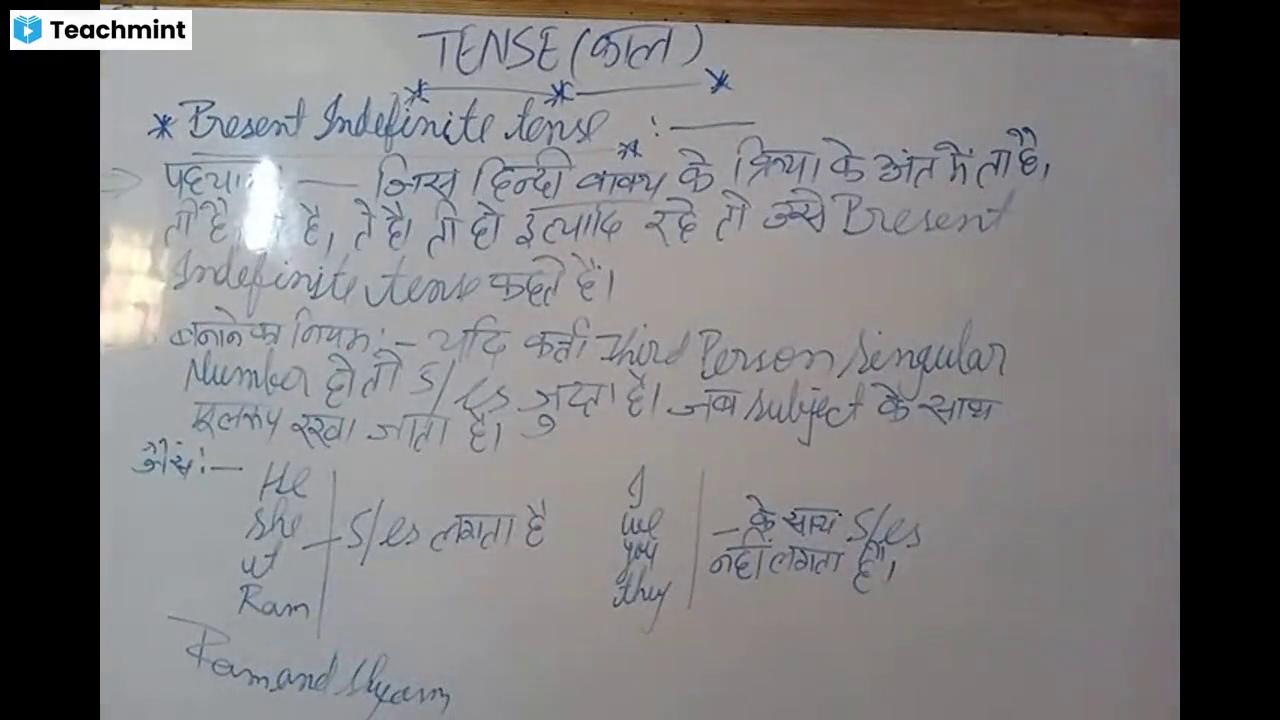 Teachmint
TENSE (काल)
* Present Indefinite tense :—
जिस हिन्दी वाक्य के क्रिया के अंत में ता है,
ती है, है, ते है। तो हो इत्यादि रहे तो उसे Present
Indefinite tense कहते हैं।
बनाने का नियम :- यदि कर्ता Third Person Singular
Number हो तो S/es जुटता है। जब subject के साथ
मूलरूप रखा जाता है।
जैसे :-
He
She
it
Ram
S/es लगता है
I
we
you
they
के साथ S/es
नहीं लगता है।
Ram and Shyam